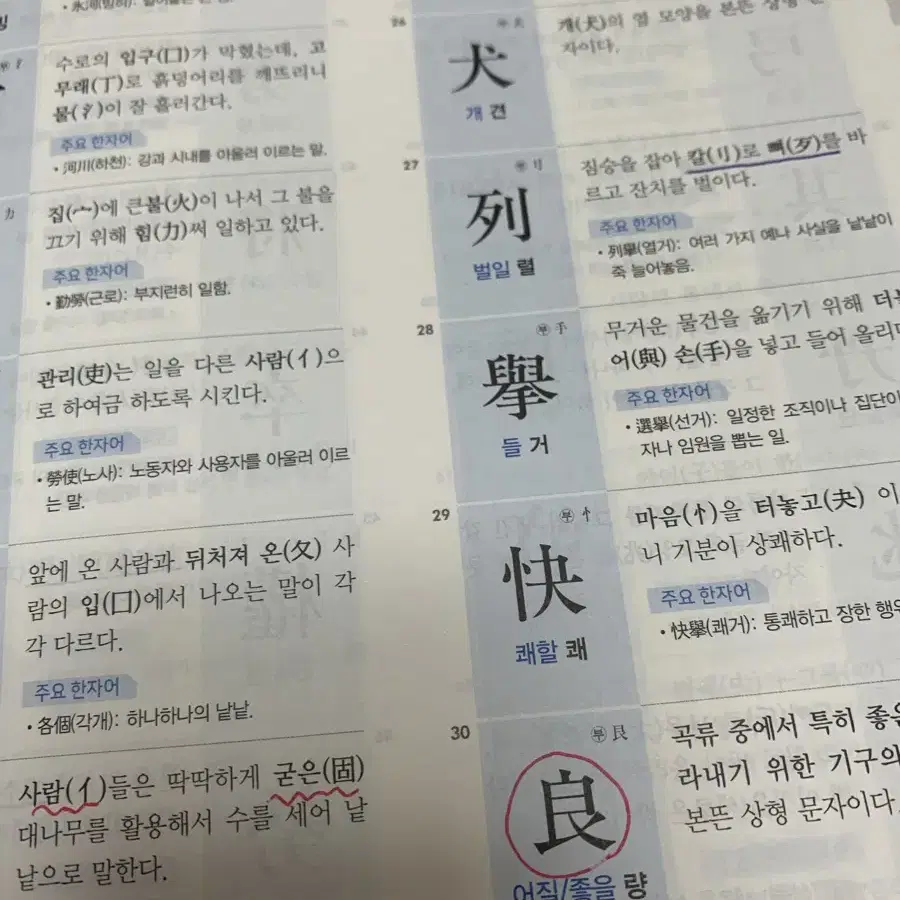 수로의 입구(口)가 막혔는데, 고
무래(丁)로 흙덩어리를 깨뜨리니
물(氵)이 잘 흘러간다.
주요 한자어
• 河川(하천): 강과 시내를 아울러 이르는 말.
力
집(宀)에 큰불(火)이 나서 그 불을
끄기 위해 힘(力)써 일하고 있다.
주요 한자어
• 勤勞(근로): 부지런히 일함.
관리(吏)는 일을 다른 사람(亻)으
로 하여금 하도록 시킨다.
주요 한자어
• 勞使(노사): 노동자와 사용자를 아울러 이르
는 말.
앞에 온 사람과 뒤처져 온(夂) 사
람의 입(口)에서 나오는 말이 각
각 다르다.
주요 한자어
• 各個(각개): 하나하나의 낱낱.
사람(亻)들은 딱딱하게 굳은(固)
대나무를 활용해서 수를 세어 낱
낱으로 말한다.
26
부 犬
犬
개 견
개(犬)의 옆 모양을 본뜬 상형
자이다.
27
부 刂
列
벌일 렬
짐승을 잡아 칼(刂)로 뼈(歹)를 바
르고 잔치를 벌이다.
주요 한자어
• 列擧(열거): 여러 가지 예나 사실을 낱낱이
죽 늘어놓음.
28
부 手
擧
들 거
무거운 물건을 옮기기 위해 더
어(與) 손(手)을 넣고 들어 올리
주요 한자어
• 選擧(선거): 일정한 조직이나 집단이
자나 임원을 뽑는 일.
29
부 忄
快
쾌할 쾌
마음(忄)을 터놓고(夬) 이
니 기분이 상쾌하다.
주요 한자어
• 快擧(쾌거): 통쾌하고 장한 행
30
부 艮
良
어질/좋을 량
곡류 중에서 특히 좋은
라내기 위한 기구의
본뜬 상형 문자이다.